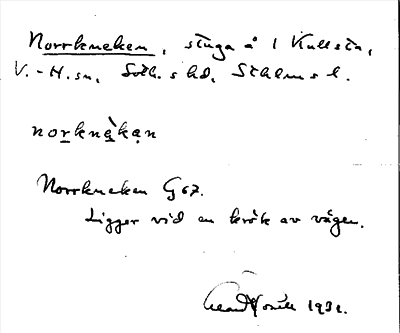 Norrkneken, stuga å 1 Kullsta,
V.-H.sn, Soth.s hd, Sthlms l.
norknèkan
Norrkneken G 67.
Ligger vid en krök av vägen.
1931.